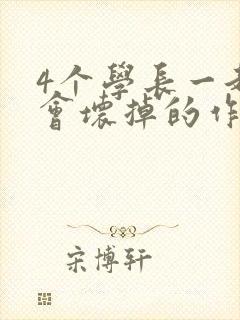 4个學長一
會壞掉的作
宋博轩